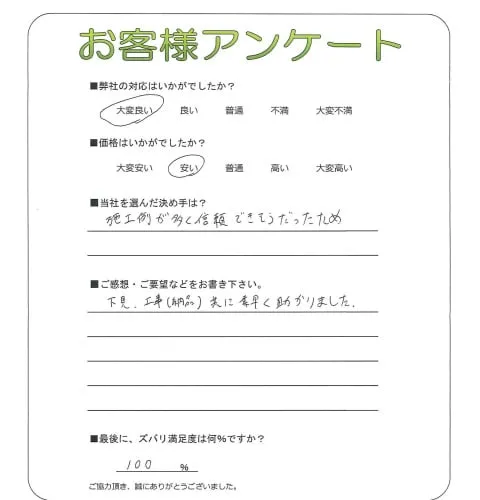 お客様アンケート
■弊社の対応はいかがでしたか？
大変良い 良い 普通 不満 大変不満
■価格はいかがでしたか？
大変安い 安い 普通 高い 大変高い
■当社を選んだ決め手は？
施工例が多く信頼できそうだったため
■ご感想・ご要望などをお書き下さい。
下見、工事(納品)共に素早く助かりました。
■最後に、ズバリ満足度は何%ですか？
100 %
ご協力頂き、誠にありがとうございました。